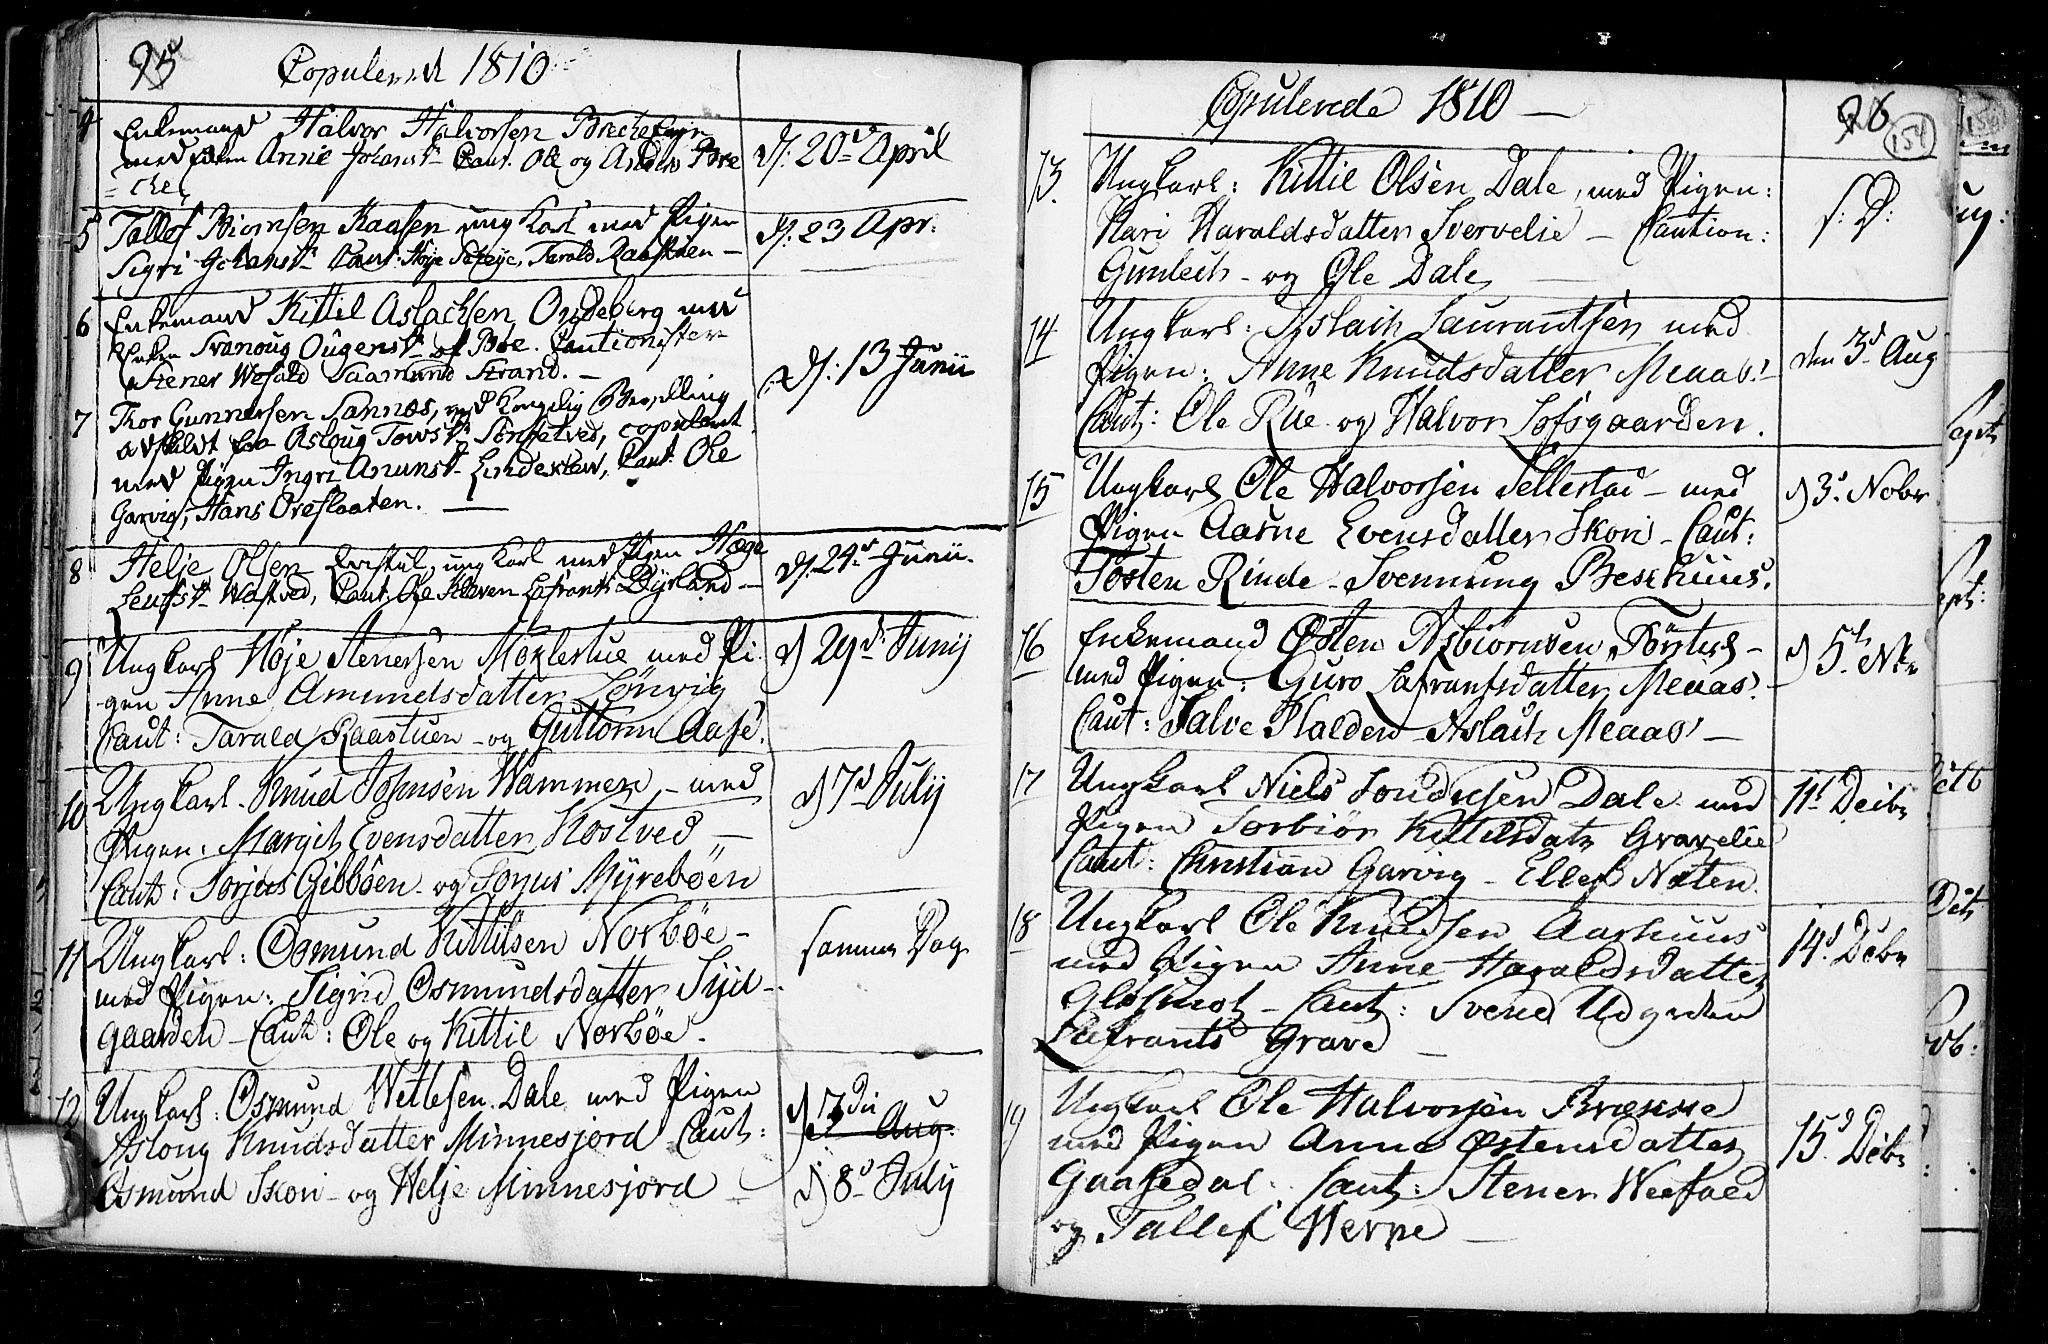 95
Copulerede 1810
4
Enkemand Halvor Halvorsen
med Enken Anne Johansd. Caut. Ole og Anders Bre
= che
d: 20de April
5
Tollef Biørnsen Kaasen ung Karl med Pigen
Sigri Johansd. Caut: Høje Tarald Raastuen
d: 23 Apr:
6
Enkemand Kittil Aslachsen Ondeberg med
Enken Svanoug Oûgensd. af Bøe. Cautionister
Stener Wefald Saamund Strand.
d: 13 Junii
7
Thor Gunnersen Sannæs, ved Kongelig Bevilling
adskildt fra Asloug Towsd. Sønstetved, copuleret
med Pigen Ingri Anunsd. Caut. Ole
Garvig, Hans Oreslaaten.
8
Helje Olsen ung Karl med Pigen Hæge
Leufsd. Wastved, Caut. Ole Kleven Lafrants Dyrland
d: 24de Junii.
9
Ungkarl Høje Stenersen Moxlestue med Pi
gen Anne Amundsdatter Lønvig
Caut: Tarald Raastuen og Guttorm Aase.
d 29d: Junij
10
Ungkarl Knud Johnsen Wammen, med
Pigen: Margit Evensdatter Kostved
Caut: Torjus Gibbøen og Torjus Myrebøen
d 7d July
11
Ungkarl: Osmund Kittilsen Norbøe
med Pigen: Sigrid Osmundsdatter Syd-
gaarden Caut: Ole og Kittil Norbøe.
samme Dag
12
Ungkarl: Osmund Wetlesen Dale med Pigen
Asloug Knudsdatter Minnesjord Caut:
Osmund Skori og Helje Minnesjord
Aug:
d 8d July
Copulerede 1810
96
154
13.
Ungkarl: Kittil Olsen Dale, med Pigen:
Kari Haraldsdatter Svervelie Caution:
Gunleich og Ole Dale,
s: D:
14
Ungkarl: Aslach Laurantsen med
Pigen: Anne Knudsdatter Meaas:
Caut: Ole Rûe og Halvor Lofsgaarden.
den 3d Aug
15
Ungkarl Ole Halvorsen Tellestad med
Pigen Aasne Evensdatter Skori Caut:
Tosten Rinde Svennung Beschuus.
d 3d. Nobr
16
Enkemand Østen Asbiørnsen
med Pigen: Guro Lafrantsdatter Meaas.
Caut: Salve Halden Aslach Meaas
d 5t.
17
Ungkarl Niels Sondresen Dale med
Pigen Torbiør Kittilsdatr Gravelie
Caut: Christian Garvig Ellef Nuten.
11t Decbr
18
Ungkarl Ole Knudsen Aarhuus
med Pigen Anne Haraldsdatter
Caut: Svend
Lafrants Grave
14d. Decbr
19
Ungkarl Ole Halvorsen Brække
med Pigen Anne Østensdatter
Gaasedal Caut: Stener Weefald
og Tallef Werpe
15d Decbr